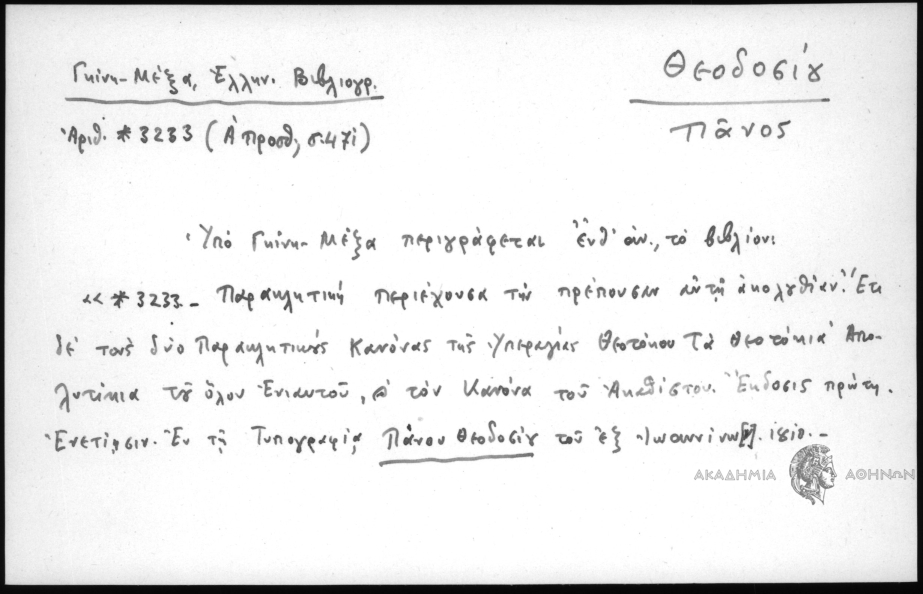 Γκίνη-Μέξα, Ἑλλην. Βιβλιογρ.
Θεοδοσίȣ
Ἀριθ. *3233 (Ἀ προσθ, σ.47)
Πᾶνος
Ὑπό Γκίνη-Μέξα περιγράφεται ἔνθ' ἀν., τὸ βιβλίον:
«*3233- Παρακλητικὴ περιέχουσα τὴν πρέπουσαν αὐτῇ ἀκολȣθίαν. Ἔτι
δὲ τοὺς δύο Παρακλητικȣ́ς Κανόνας τῆς Ὑπεραγίας Θεοτόκου Τὰ Θεοτόκια Ἀπο-
λυτίκια τȣ͂ ὅλου Ἐνιαυτοῦ, ϗ τὸν Κανόνα τοῦ Ἀκαθίστου. Ἔκδοσις πρώτη.
Ἐνετίῃσιν. Ἐν τῇ Τυπογραφίᾳ Πάνου Θεοδοσίȣ τοῦ ἐξ Ἰωαννίνω[ν]. 1810.-
ΑΚΑΔΗΜΙΑ ΑΘΗΝΩΝ